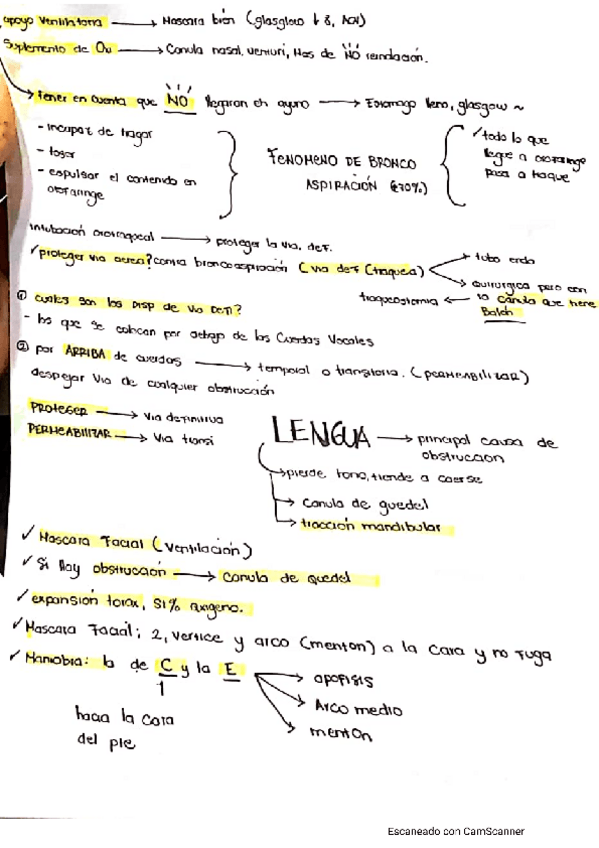 apoyo ventilatoria → Mascara bien (glasglow ↓ 8,
Suplemento de Ou → Canula nasal, venturi, Mas de NO reinalación.
tener en cuenta que NO llegaron en ayuno → Estomago lleno, glasgow ~
- incapaz de tragar
- toser
- espulsar el contenido en orofaringe
FENOMENO DE BRONCO
ASPIRACIÓN (±30%)
✓ todo lo que
llegue a orofaringe
pasa a traque
intubación orotraqueal → proteger la via, def.
✓ proteger via aerea? contra broncoaspiración (via def (traquea)
→ tubo endo
→ quirurgica pero con
traqueostomia ← la canula que tiene
Baloh
① cuales son los Disp de via DeF?
- los que se colocan por debajo de las Cuerdas Vocales
② por ARRIBA de cuerdas → temporal o transitoria. (PERMEABILIZAR)
despejar via de cualquier obstrucción
PROTEGER → Via definitiva
PERMEABILIZAR → Via transi
LENGUA → principal causa de
obstruccion
→ pierde tono, tiende a caerse
→ Canula de guedel
→ tracción mandibular
✓ Mascara Facial (ventilación)
✓ Si hay obstrucción → canula de guedel
✓ expansión torax, S1% oxigeno.
✓ Mascara Facial; 2, vertice y arco (menton) a la cara y no Fuga
✓ Maniobra: la de C y la E → apofisis
→ Arco medio
→ menton
hacia la cara
del pie
Escaneado con CamScanner